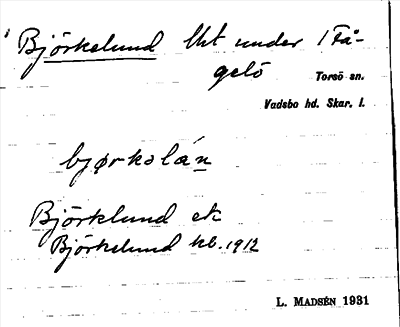 Björkelund lht under 1 Få-
gelö Torsö sn.
Vadsbo hd. Skar. l.
bjørkolán
Björklund ek
Björkelund kb. 1912
L. MADSÉN 1931